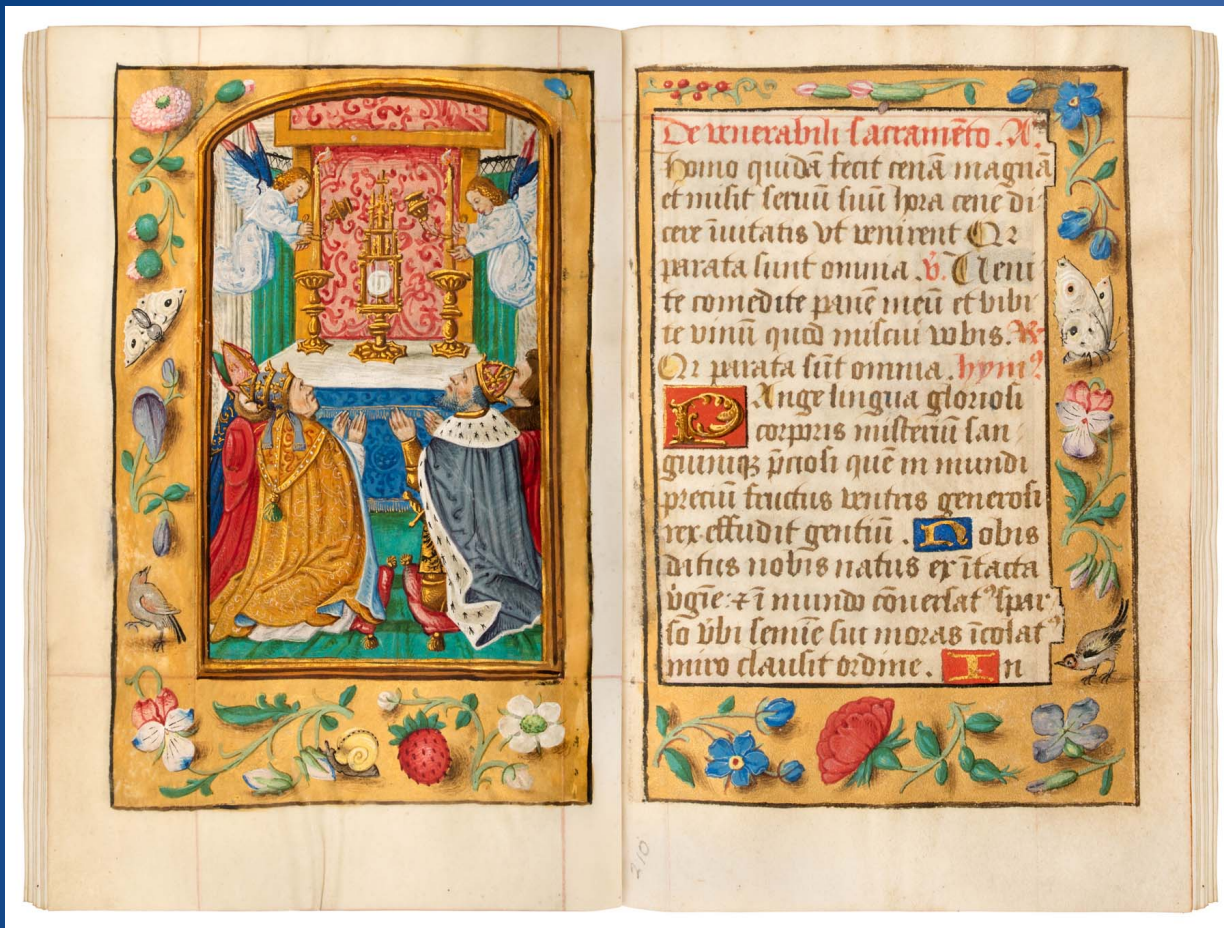 De venerabili sacramēto. A.
Homo quidā fecit cenā magnā
et misit seruū suū hora cene di
cere īuitatis vt venirent Qr
parata sunt omnia. v̄. Veni
te comedite panē meū et bibi
te vinū quod miscui vobis. R
Qr parata sūt omnia. hymꝰ
Pange lingua gloriosi
corporis misteriū san
guinisqꝫ p̄ciosi quē in mundi
preciū fructus ventris generosi
rex effudit gentiū. Nobis
datus nobis natus ex ītacta
v̄gīe: ⁊ ī mundo cōuersatꝰ spar
so v̄bi semīe sui moras īcolatꝰ
miro clausit ordine. In
210